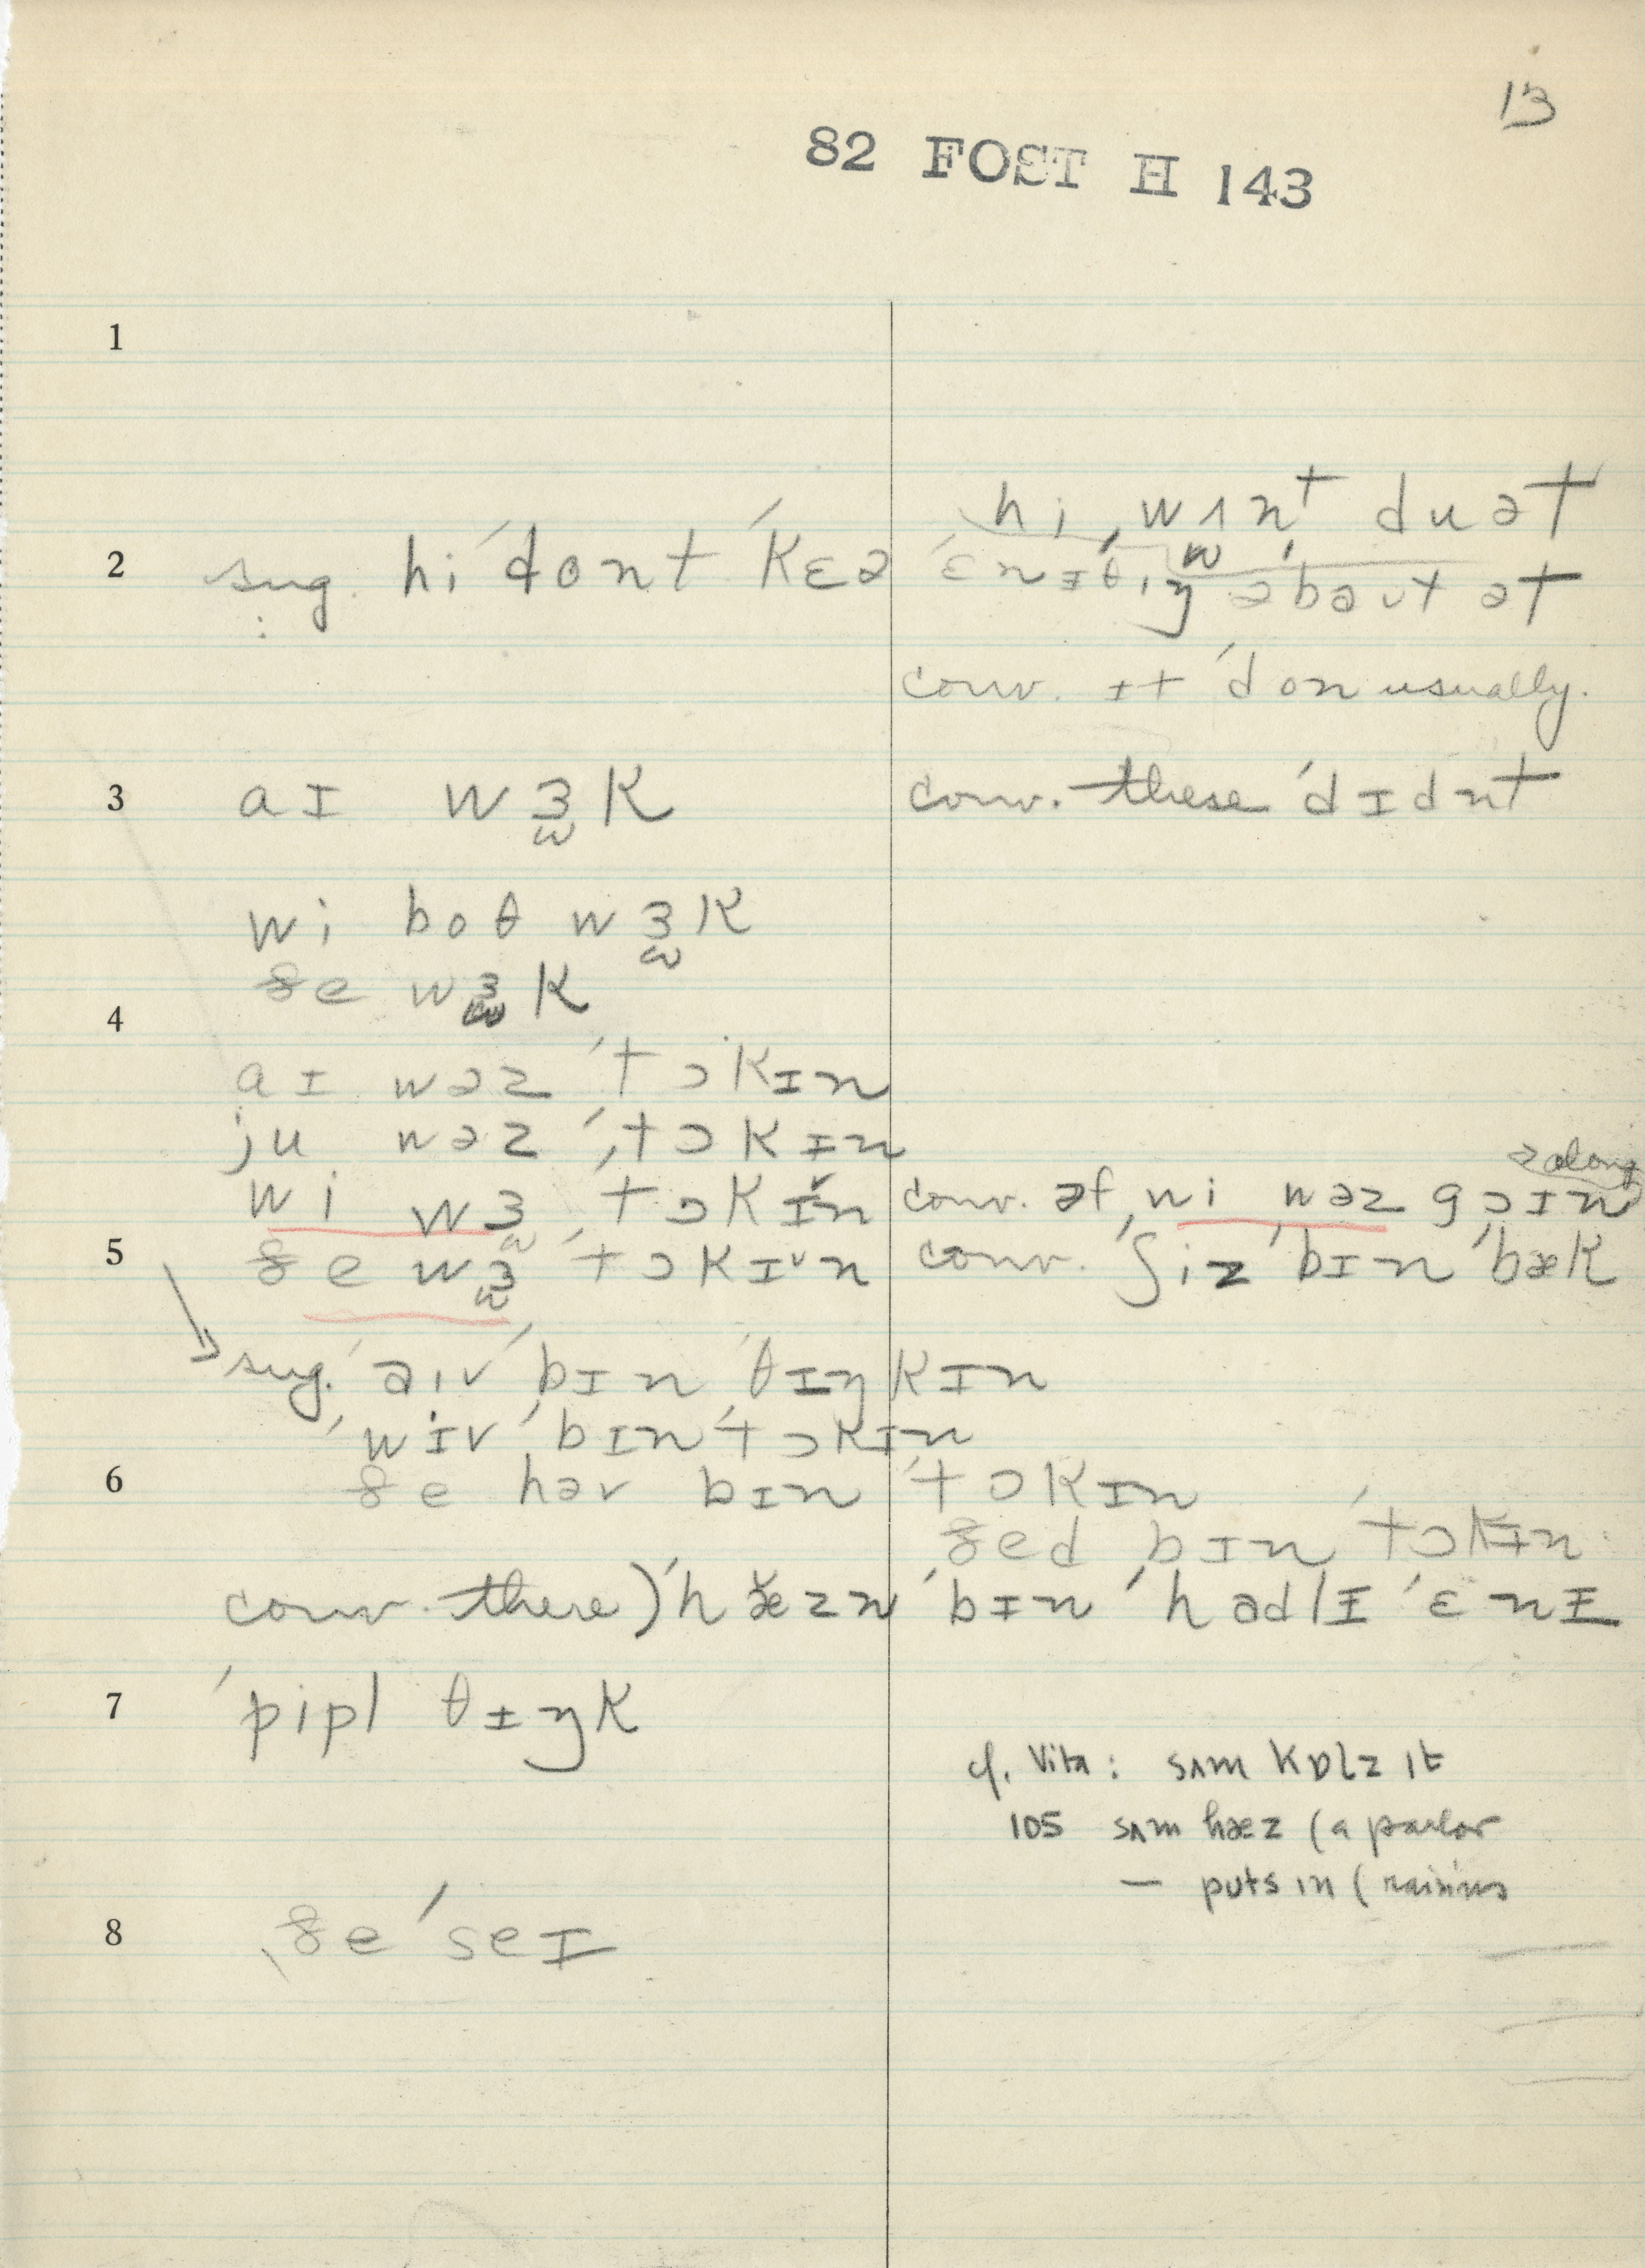 13
82 FOST H 143
1
hi wʌnt du ət
2 sug. hi ˈdont ˈkɛə ˈɛnɪθɪŋ əˈbaʊt ət
conv. ɪt ˈdon usually.
3 aɪ wɜk conv. these ˈdɪdnt
wi boθ wɜk
ðe wɜk
4
aɪ wəz ˈtɔkɪn
ju wəz ˈtɔkɪn
along
wi wɜ ˈtɔkɪn conv. əf wi wəz gɔɪn
5 ðe wɜ ˈtɔkɪn conv. ʃiz bɪn ˈbæk
sug. aɪv ˈbɪn ˈθɪŋkɪn
ˈwiv ˈbɪn ˈtɔkɪn
6 ðe həv bɪn ˈtɔkɪn
ðed bɪn ˈtɔkɪn
conv. there) ˈhæzn ˈbɪn ˈhadlɪ ˈɛnɪ
7 ˈpipl θɪŋk
cf. Vita: sʌm kɒlz ɪt
105 sʌm hæz (a parlor
— puts in (raisins
8 ðe ˈseɪ